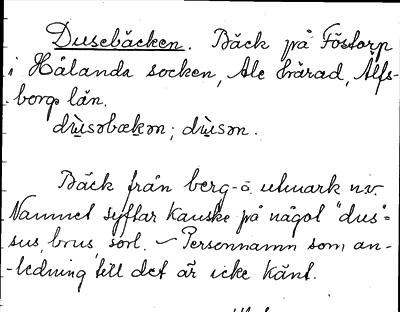 Dusebäcken. Bäck på Föstorp
i Hålanda socken, Ale härad, Älfs-
borgs län.
dùsəbækən; dùsən.
Bäck från berg- o. utmark n.v.
Namnet syftar kanske på något "dus"=
sus, brus, sorl. – Personnamn som an-
ledning till det är icke känt.